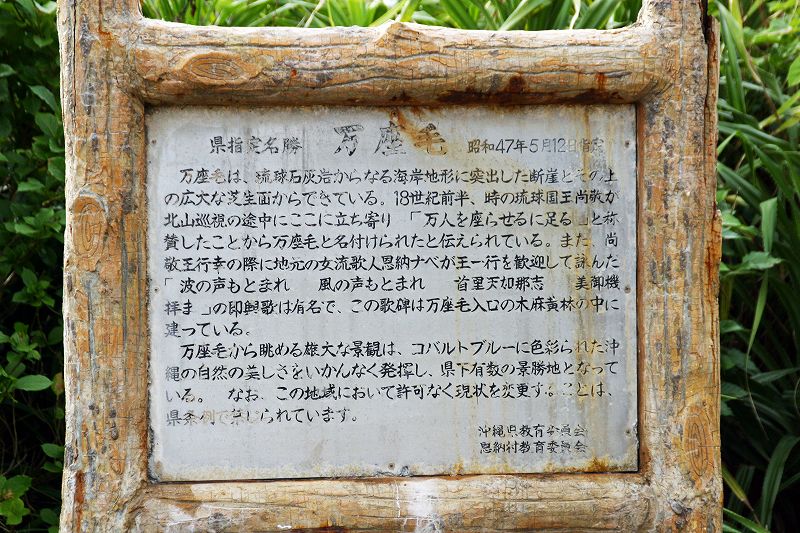 県指定名勝 万座毛 昭和47年5月12日指定
万座毛は、琉球石灰岩からなる海岸地形に突出した断崖とその上
の広大な芝生面からできている。18世紀前半、時の琉球国王尚敬が
北山巡視の途中にここに立ち寄り 「万人を座らせるに足る」と称
賛したことから万座毛と名付けられたと伝えられている。また、尚
敬王行幸の際に地元の女流歌人恩納ナベが王一行を歓迎して詠んだ
「波の声もとまれ 風の声もとまれ 首里天加那志 美御機
拝ま」の即興歌は有名で、この歌碑は万座毛入口の木麻黄林の中に
建っている。
万座毛から眺める雄大な景観は、コバルトブルーに色彩られた沖
縄の自然の美しさをいかんなく発揮し、県下有数の景勝地となって
いる。 なお、この地域において許可なく現状を変更することは、
県条例で禁じられています。
沖縄県教育委員会
恩納村教育委員会